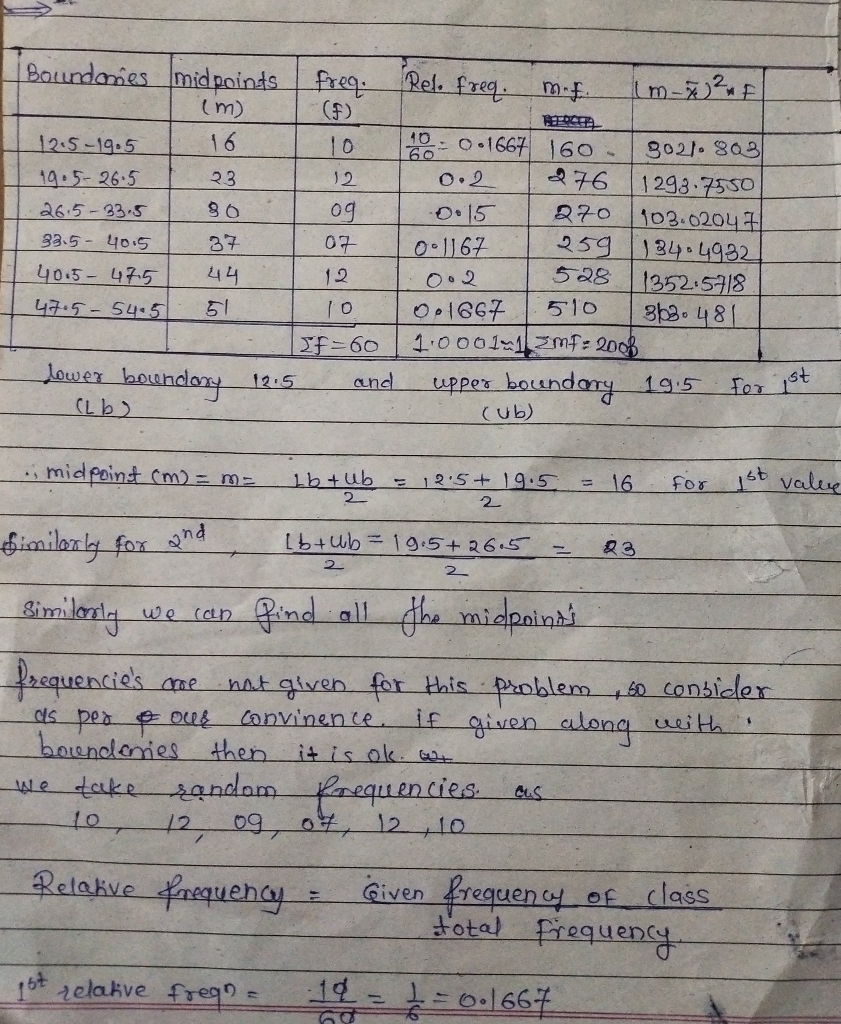 Boundories midpoints freq. Rel. freq. m.f. (m-x̄)²*F
(m) (f)
12.5-19.5 16 10 10/60 = 0.1667 160 3021.803
19.5-26.5 23 12 0.2 276 1293.7550
26.5-33.5 30 09 0.15 270 103.02047
33.5-40.5 37 07 0.1167 259 134.4932
40.5-47.5 44 12 0.2 528 1352.5718
47.5-54.5 51 10 0.1667 510 3131.481
Σf=60 1.0001≈1 Σmf=2003
lower boundary 12.5 and upper boundary 19.5 for 1st
(Lb) (Ub)
∴ midpoint (m) = m = Lb+ub/2 = 12.5+19.5/2 = 16 for 1st value
Similarly for 2nd, Lb+Ub/2 = 19.5+26.5/2 = 23
Similarly we can find all the midpoints
frequencie's are not given for this problem, so consider
as per our convinence. if given along with
boundories then it is ok.
we take random frequencies. as
10, 12, 09, 07, 12, 10
Relative frequency = Given frequency of class / total frequency
1st relative freqn = 10/60 = 1/6 = 0.1667